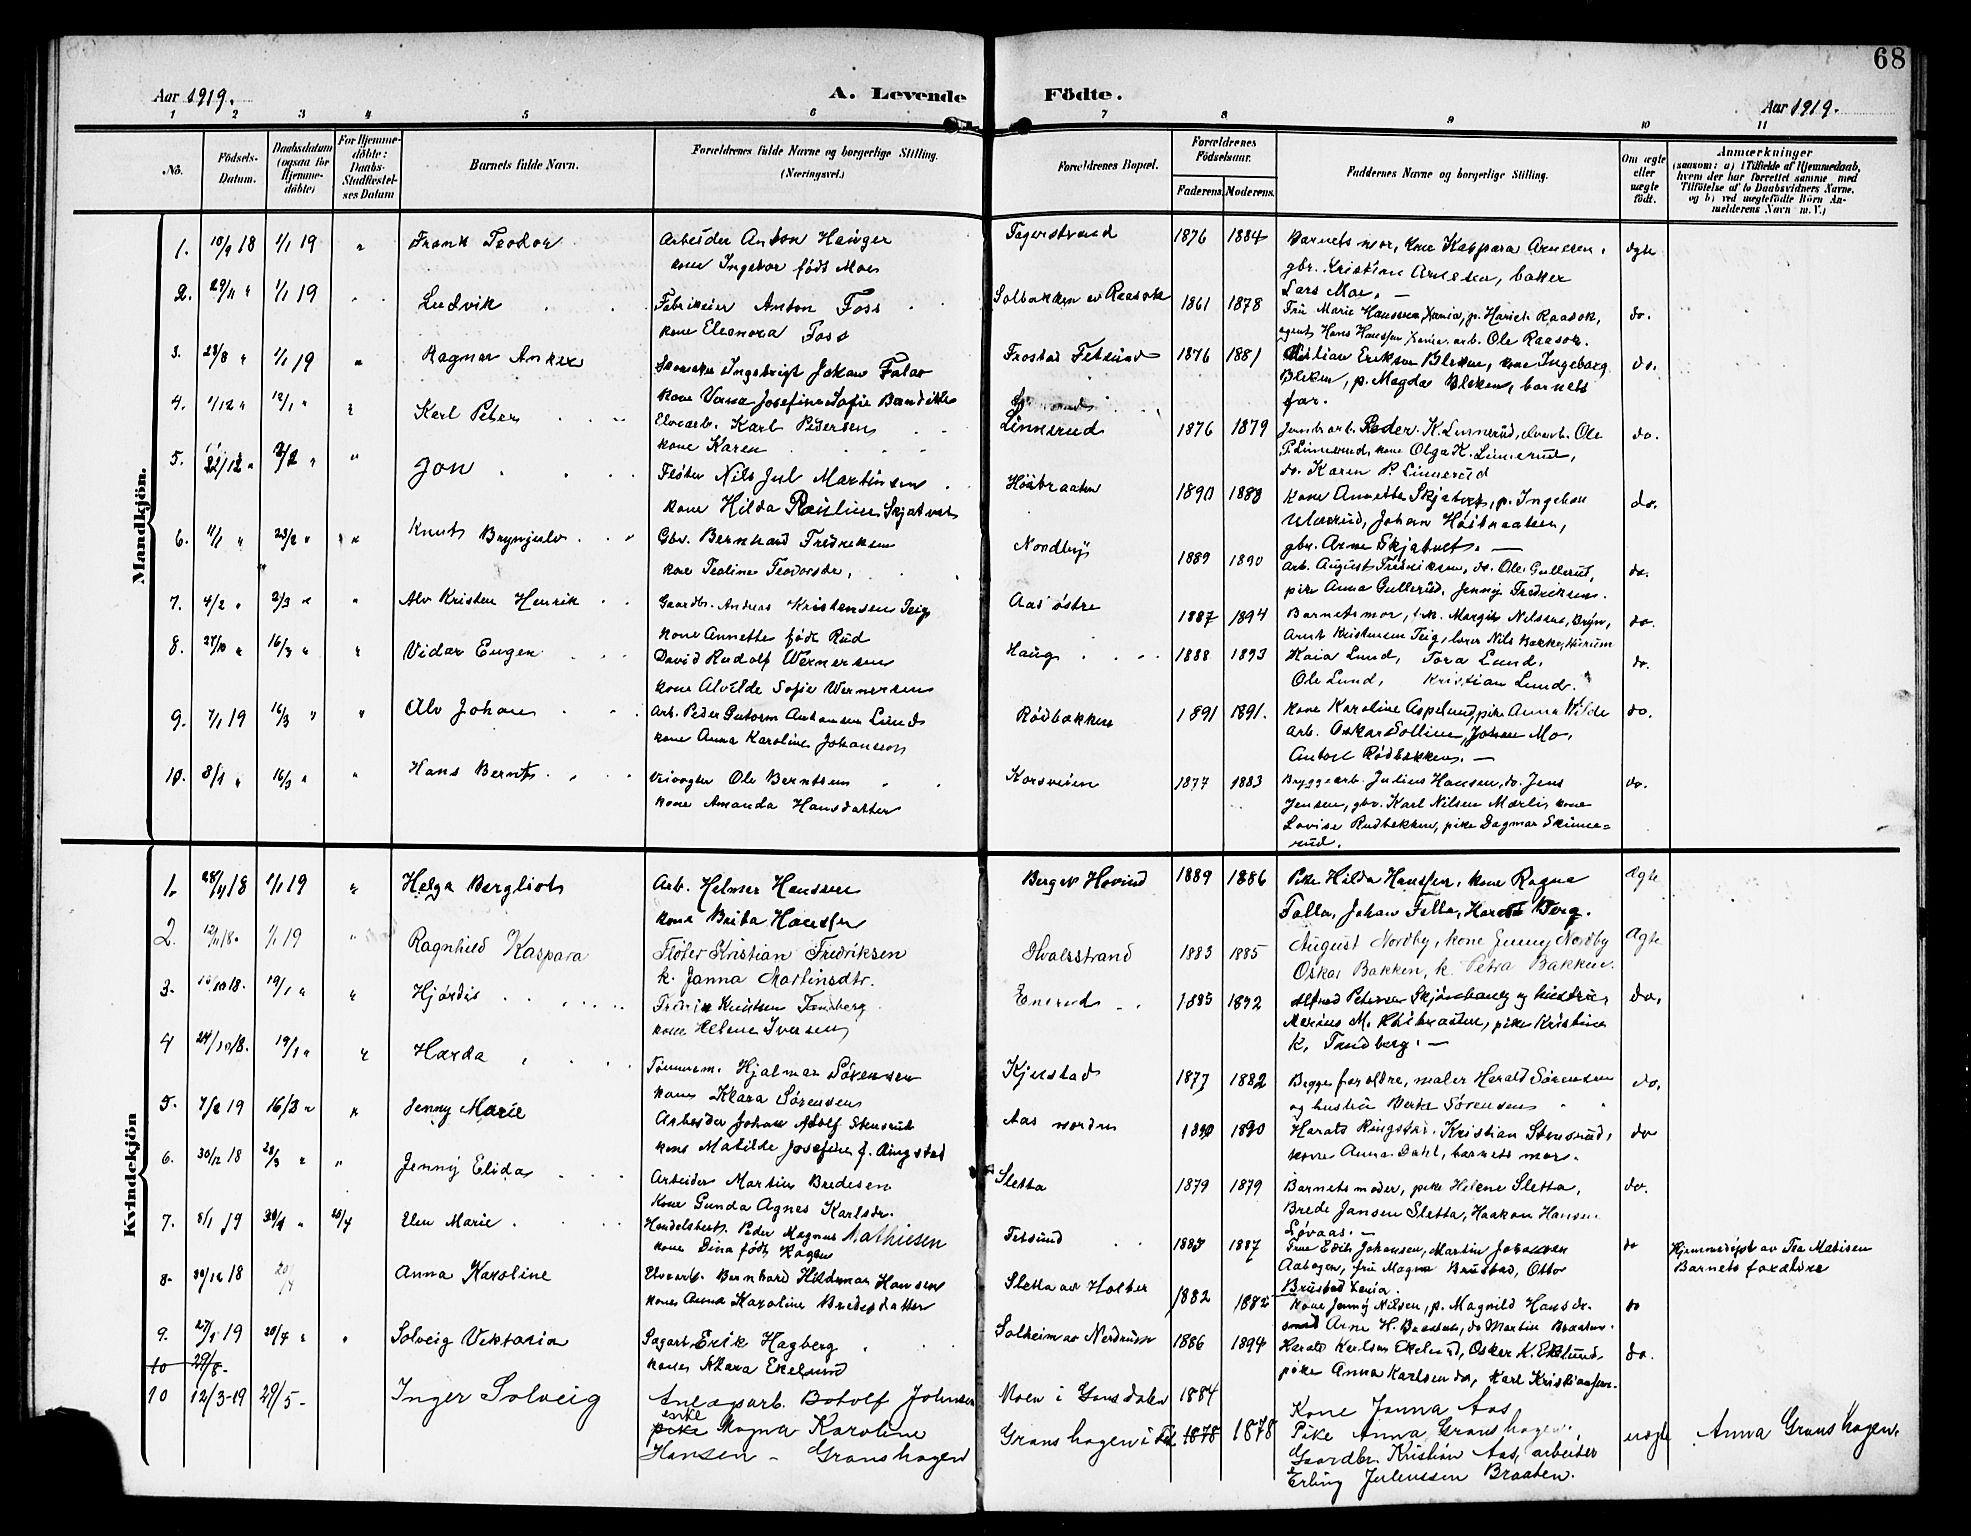 68
Aar 1919.
A. Levende Födte.
Aar 1919.
1 2 3 4 5 6 7 8 9 10 11
No.
Födsels-Datum.
Daabsdatum (ogsaa for Hjemmedöbte)
For Hjemmedöbte: Daabs-Stadfæstelses Datum
Barnets fulde Navn.
Forældrenes fulde Navne og borgerlige Stilling. (Næringsvei.)
Forældrenes Bopæl.
Forældrenes Födselsaar.
Faderens. Moderens.
Faddernes Navne og borgerlige Stilling.
Om ægte eller uægte födt.
Anmærkninger
(saasom: a) i Tilfælde af Hjemmedaab, hvem der har forrettet samme med Tilföielse af to Daabsvidners Navne, og b) ved uægtefödte Börn Anmelderens Navn m. V.)
Mandkjön.
1. 18/9 18 1/1 19 " Frank Teodor Arbeider Anton Hauger
kone Ingebor født Moe
Fagerstrand 1876 1884 Barnets mor, kone Kaspara Arnesen,
gbr. Kristian Arnesen, bakker
Lars Moe. —
ægte
2. 29/11 " 1/1 19 " Ludvik Fabrikeier Anton Foss
kone Eleonora Foss
Solbakken av Raasok 1861 1878 Fru Marie Hanssen, Xania, p. Hariet Raasok,
agent Hans Hanssen Xania, arb. Ole Raasok.
do.
3. 28/8 " 1/1 19 " Ragnar Anker Skomaker Ingebrigt Johan Falao
kone Verna Josefine Sofie Bendikte
Frostad Fetsund 1876 1881 Kristian Eriksen Bleken, kone Ingeborg
Bleken, p. Magda Bleken, barnets
far.
do.
4. 1/12 " 12/1 " Karl Peter Elvearb. Karl Pedersen
kone Karen
Linnerud 1876 1879 Jernb.arb. Peder K. Linnerud, elvearb. Ole
P. Linnerud, kone Olga K. Linnerud,
do. Karen P. Linnerud
do.
5. 22/12 " 2/2 " " Jon Fløter Nils Jul Martinsen
kone Hilda Pauline Skjatvet
Høibraaten 1890 1888 Kone Annette Skjatvet, p. Ingeborg
Ulverud, Johan Høibraaten,
gbr. Arne Skjatvet. —
do.
6. 11/1 " 23/2 " " Knut Brynjulv Gbr. Bernhard Fredriksen
kone Teoline Teodorsdr.
Nordby 1889 1890 arb. August Fredriksen, do. Ole Gullerud,
pike Anna Gullerud, Jenny Fredriksen.
do.
7. 4/2 " 2/3 " " Alv Kristen Henrik Gaardbr. Andreas Kristensen Teig
kone Annette født Rud
Aas østre 1887 1894 Barnets mor, frk. Margit Nilsen, Bryn,
Arnt Kristensen Teig, lærer Nils Bakke, Hurum
do.
8. 27/10 " 16/3 " " Vidar Eugen David Rudolf Wernersen
kone Alvilde Sofie Wernersen
Haug 1888 1893 Maia Lund, Tora Lund,
Ole Lund, Kristian Lund.
do.
9. 7/1 19 16/3 " " Alv Johan Arb. Peder Gutorm Antonsen Lund
kone Anna Karoline Johansson
Rødbakken 1891 1891. Kone Karoline Aspelund, pike Anna Wilde
arb. Oskar Sollien, Johan Mo,
Anton Rødbakken. —
do.
10. 8/1 " 16/3 " " Hans Bernt Veivogter Ole Berntsen
kone Amanda Hansdatter
Korsveien 1877 1883 Bryggearb. Julius Hansen, do. Jens
Jensen, gbr. Karl Nilsen Mærli, kone
Lovise Rudbakken, pike Dagmar Skinne=
rud.
do.
Kvindekjön
1. 28/11 18 1/1 19 " Helga Bergliot Arb. Helmer Hanssen
kone Berta Hanssen
Berg av Hovind 1889 1886 Pike Hilda Hanssen, kone Ragna
Falla, Johan Falla, Harald Berg.
Ægte
2. 12/11 18. 1/1 19 " Ragnhild Kaspara Fløter Kristian Fredriksen
k. Janna Martinsdtr.
Hvalsstrand 1883 1885 August Nordby, kone Jenny Nordby
Oskar Bakken, k. Petra Bakken.
Ægte
3. 15/10 18. 19/1 " " Hjørdis Fredrik Knutsen Tandberg
kone Helene Iversen
Enerud 1885 1892 Alfred Petersen Skjønhaug og hustru,
Marius M. Høibraaten, pike Kristine
K. Tandberg. —
do.
4 24/10 18. 19/1 " " Harda Tømmerm. Hjalmar Sørensen
kone Klara Sørensen
Kjerstad 1877 1882 Begge forældre, maler Herald Sørensen
og hustru Berte Sørensen
do.
5. 7/2 19 16/3 " " Jenny Marie Arbeider Johan Adolf Stensrud
kone Matilde Josefine f. Ringstad
Aas nordre 1890 1890 Harald Ringstad, Kristian Stensrud,
kone Anna Dahl, barnets mor.
do
6. 30/12 18 23/3 " " Jenny Elida Arbeider Martin Bredesen
kone Gunda Agnes Karlsdr.
Sletta 1879 1879 Barnets moder, pike Helene Sletta,
Brede Jansen Sletta, Haakon Hansen
Løvaas. —
do.
7. 8/1 19 20/4 " 20/4 Elen Marie Handelsbest. Peder Magnus Mathiesen
kone Dina født Hagen
Fetsund 1883 1887 Frue Edith Johansen, Martin Johansen
Aabogen, fru Magna Brustad, Otto
Brustad Xania.
do Hjemmedøpt av Tea Matisen
Barnets forældre
8. 30/12 18 20/4 Anna Karoline Elvearb. Bernhard Hildemar Hansen
kone Anna Karoline Bredesdatter
Sletta av Holter 1882 1882 Kone Jenny Nilsen, p. Magnild Hansdr.
Arne H. Braaten, do Martin Braaten.
do
9. 27/1 19 20/4 " " Solveig Viktoria Sagarb. Erik Hagberg
kone Klara Ekelund
Solheim av Nerdrum 1886 1894 Harald Karlsen Ekelund, Oskar K. Ekelund,
pike Anna Karlsen do, Karl Kristiansen.
do.
10 29/8 -
10 12/3-19 29/5- Inger Solveig Anlægsarb. Botolf Johnsen
enke
pike Magna Karoline
Hansen - Granshagen
Moen i Gausdalen 1884
Granshagen i Fet 1878 1878 Kone Janna Aas
Pike Anna Granshagen,
Gaardbr. Kristian Aas, arbeider
Erling Juliussen Braaten.
uægte Anna Granshagen.